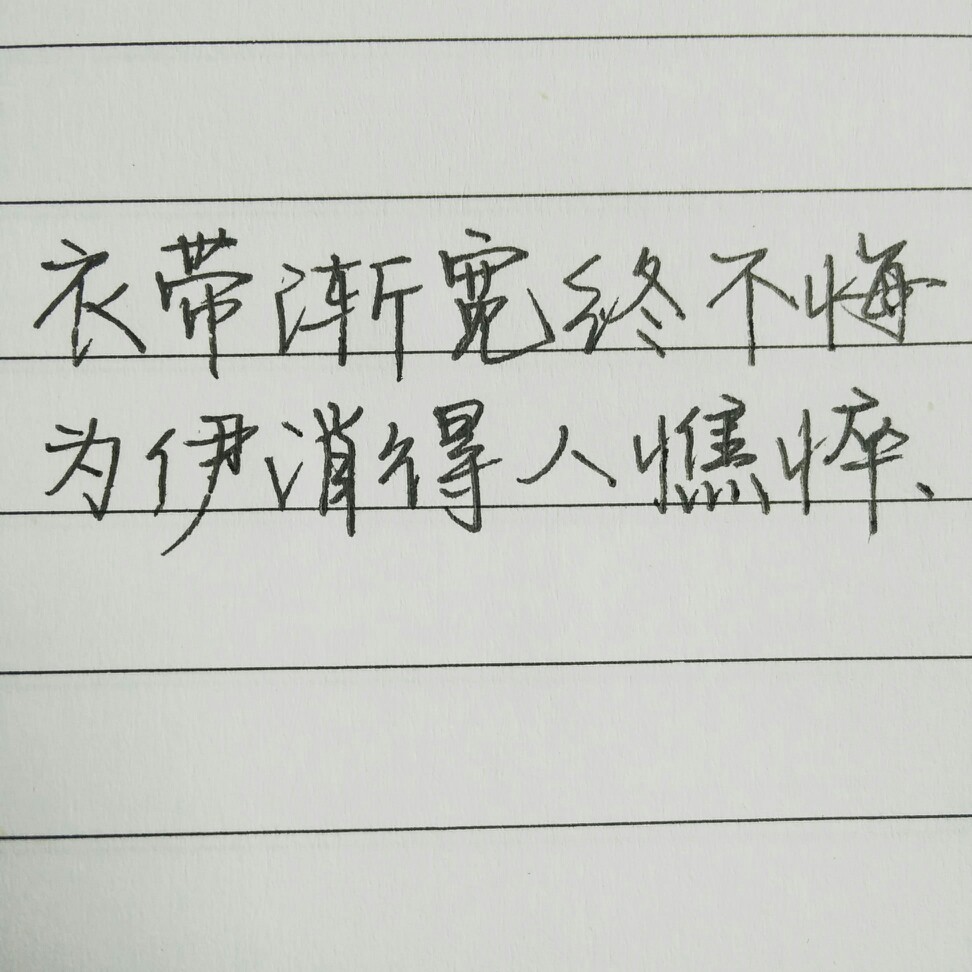 衣带渐宽终不悔
为伊消得人憔悴、